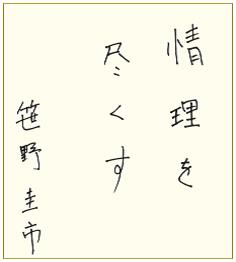 情理を
尽くす
笹野圭市